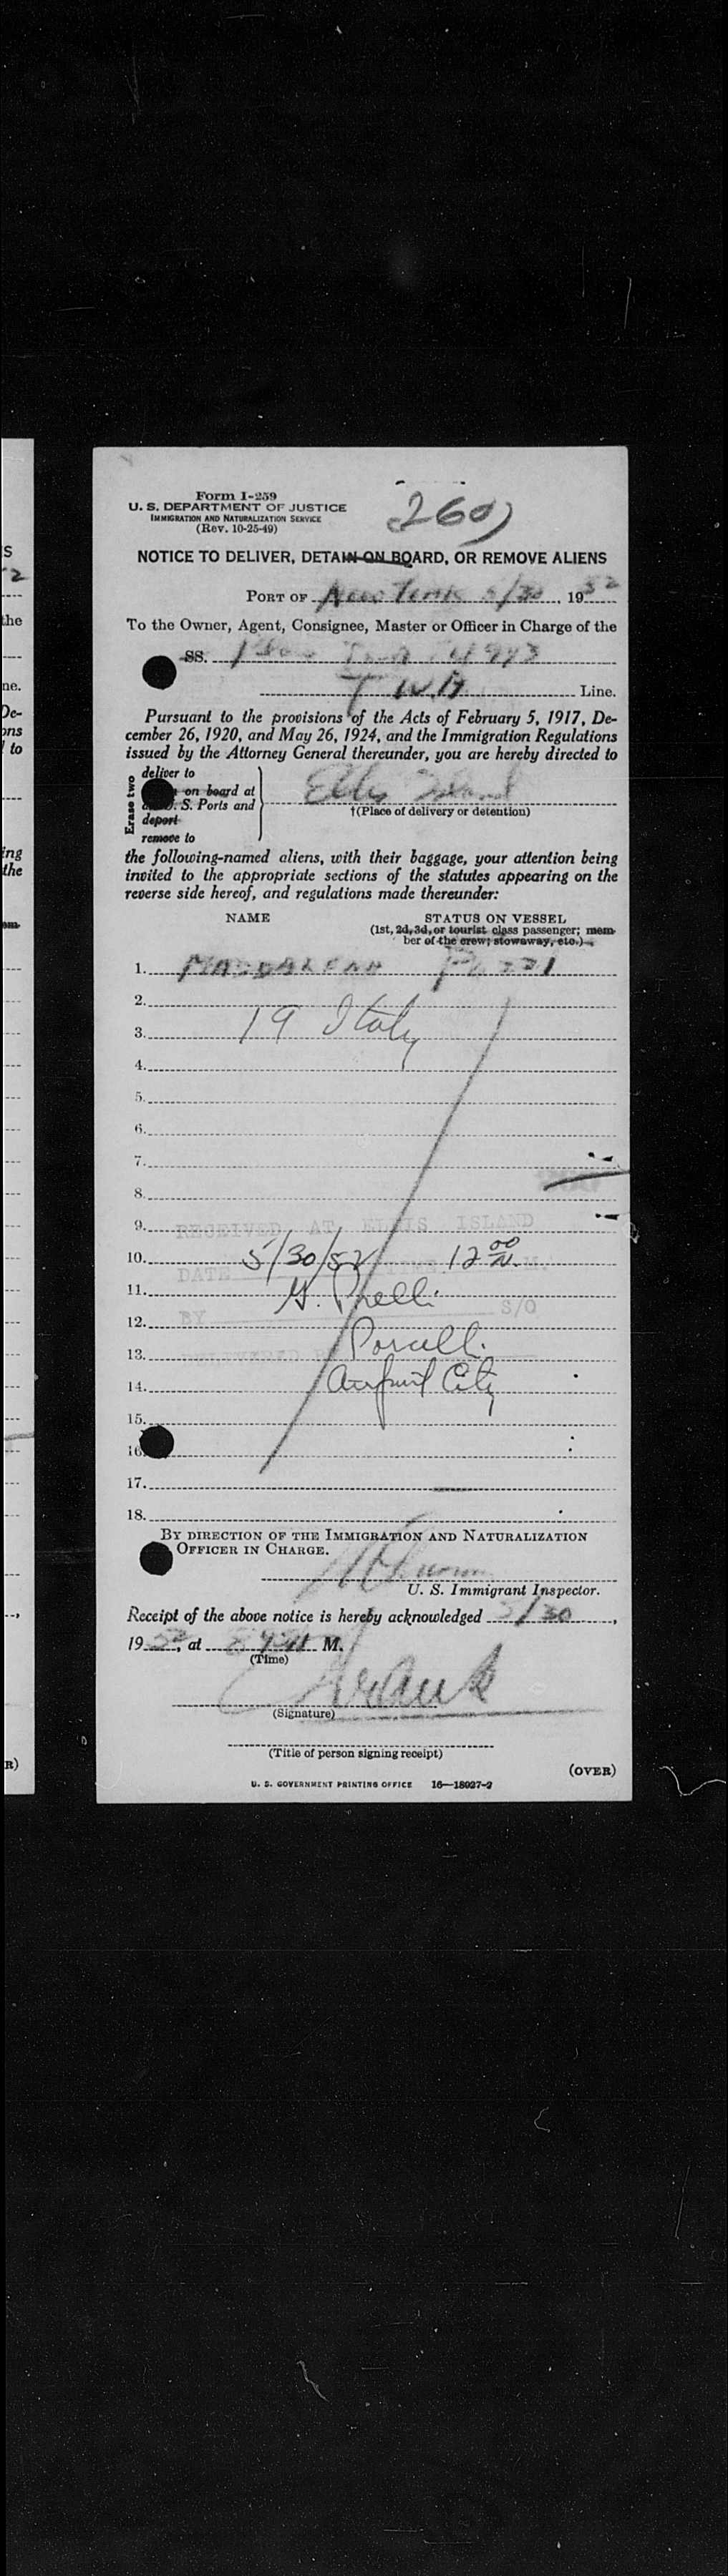 S
52
the
ne.
De-
ons
to
ing
the
em-
R)
Form I-259
U. S. DEPARTMENT OF JUSTICE
IMMIGRATION AND NATURALIZATION SERVICE
(Rev. 10-25-49)
260
NOTICE TO DELIVER, DETAIN ON BOARD, OR REMOVE ALIENS
PORT OF New York 5/30, 1952
To the Owner, Agent, Consignee, Master or Officer in Charge of the
SS.
TWA Line.
Pursuant to the provisions of the Acts of February 5, 1917, De-
cember 26, 1920, and May 26, 1924, and the Immigration Regulations
issued by the Attorney General thereunder, you are hereby directed to
Erase two
deliver to
on board at
U. S. Ports and
deport
remove to
Ellis Island
†(Place of delivery or detention)
the following-named aliens, with their baggage, your attention being
invited to the appropriate sections of the statutes appearing on the
reverse side hereof, and regulations made thereunder:
NAME STATUS ON VESSEL
(1st, 2d, 3d, or tourist class passenger; mem-
ber of the crew; stowaway, etc.)
1. MAGDALENA
2.
3. 19 Italy
4.
5.
6.
7.
8.
9. RECEIVED AT ELLIS ISLAND
10. 5/30/52 12 00 N.
DATE M.
11.
BY S/O
12.
13. Porcelli
DELIVERED
14. City
15.
16.
17.
18.
BY DIRECTION OF THE IMMIGRATION AND NATURALIZATION
OFFICER IN CHARGE.
U. S. Immigrant Inspector.
Receipt of the above notice is hereby acknowledged 5/30,
1952, at M.
(Time)
Frank
(Signature)
(Title of person signing receipt)
(OVER)
U. S. GOVERNMENT PRINTING OFFICE 16—18027-2